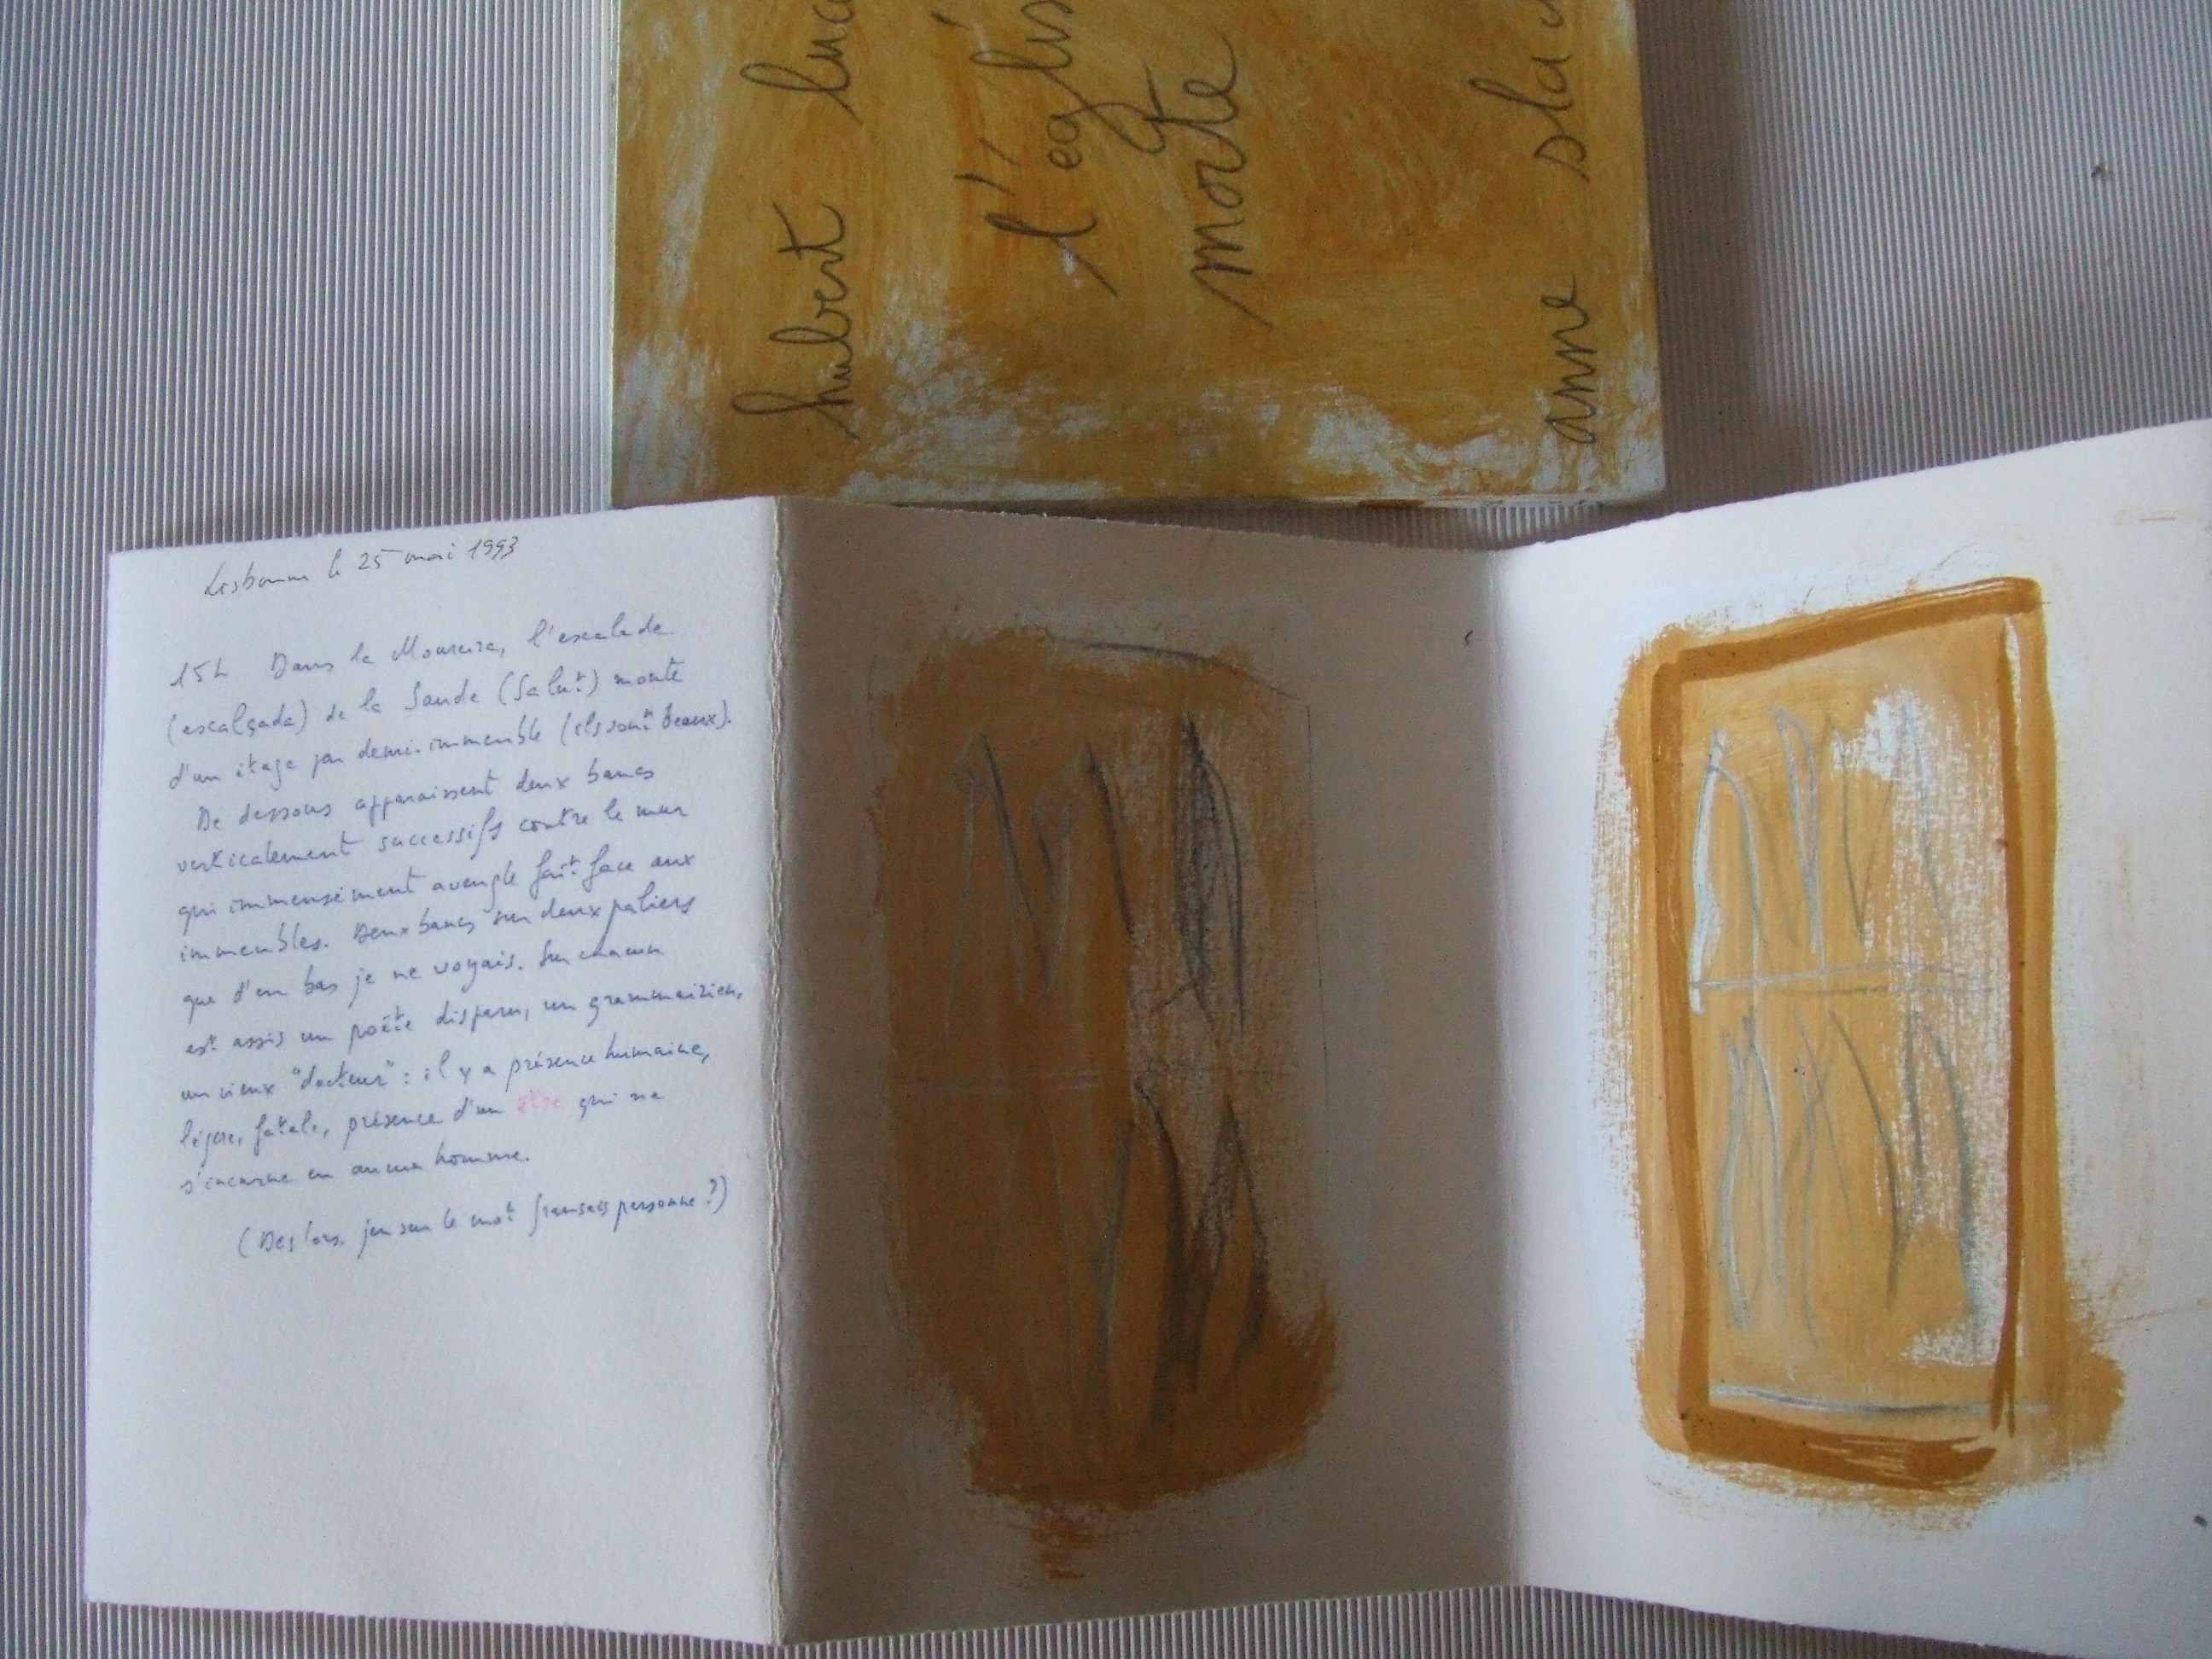 hubert luc
l'églis
morte
anne sla
Lisbonne le 25 mai 1993
15h Dans la Mouraria, l'escalade
(escalçada) de la Saude (Salut) monte
d'un étage par demi-immeuble (ils sont beaux).
De dessous apparaissent deux bancs
verticalement successifs contre le mur
qui immensément aveugle fait face aux
immeubles. Deux bancs sur deux paliers
que d'en bas je ne voyais. Sur chacun
est assis un poète disparu, un grammairien,
un vieux "docteur" : il y a présence humaine,
légère, fatale, présence d'un être qui ne
s'incarne en aucun homme.
(Dès lors, jeu sur le mot français personne ?)